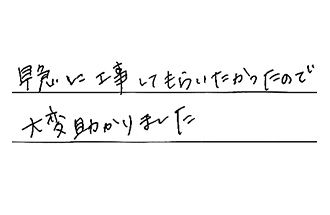 早急に工事してもらいたかったので
大変助かりました